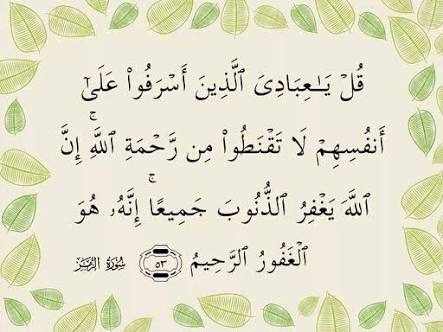 قُلْ يَـٰعِبَادِىَ ٱلَّذِينَ أَسْرَفُوا۟ عَلَىٰٓ
أَنفُسِهِمْ لَا تَقْنَطُوا۟ مِن رَّحْمَةِ ٱللَّهِ ۚ إِنَّ
ٱللَّهَ يَغْفِرُ ٱلذُّنُوبَ جَمِيعًا ۚ إِنَّهُۥ هُوَ
ٱلْغَفُورُ ٱلرَّحِيمُ ٥٣ سُورَةُ الزُّمَرِ